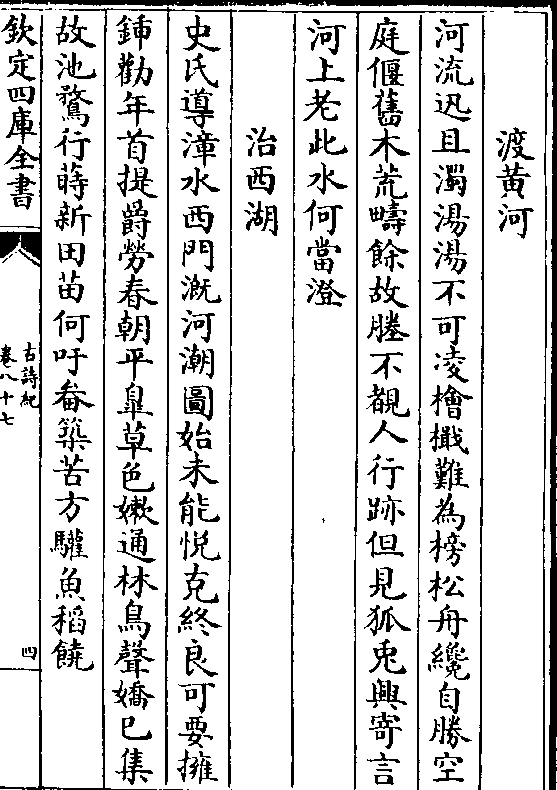 渡黄河
河流迅且濁湯湯不可凌檜檝難為榜松舟纔自勝空
庭偃舊木荒疇餘故塍不覩人行跡但見狐兎興寄言
河上老此水何當澄
治西湖
史氏導漳水西門溉河潮圖始未能悦克終良可要擁
鍤勸年首提爵勞春朝平臯草色嫩通林鳥聲嬌已集
故池鶩行蒔新田苗何吁畚築苦方驩魚稻饒
欽定四庫全書
古詩紀
卷八十七
四